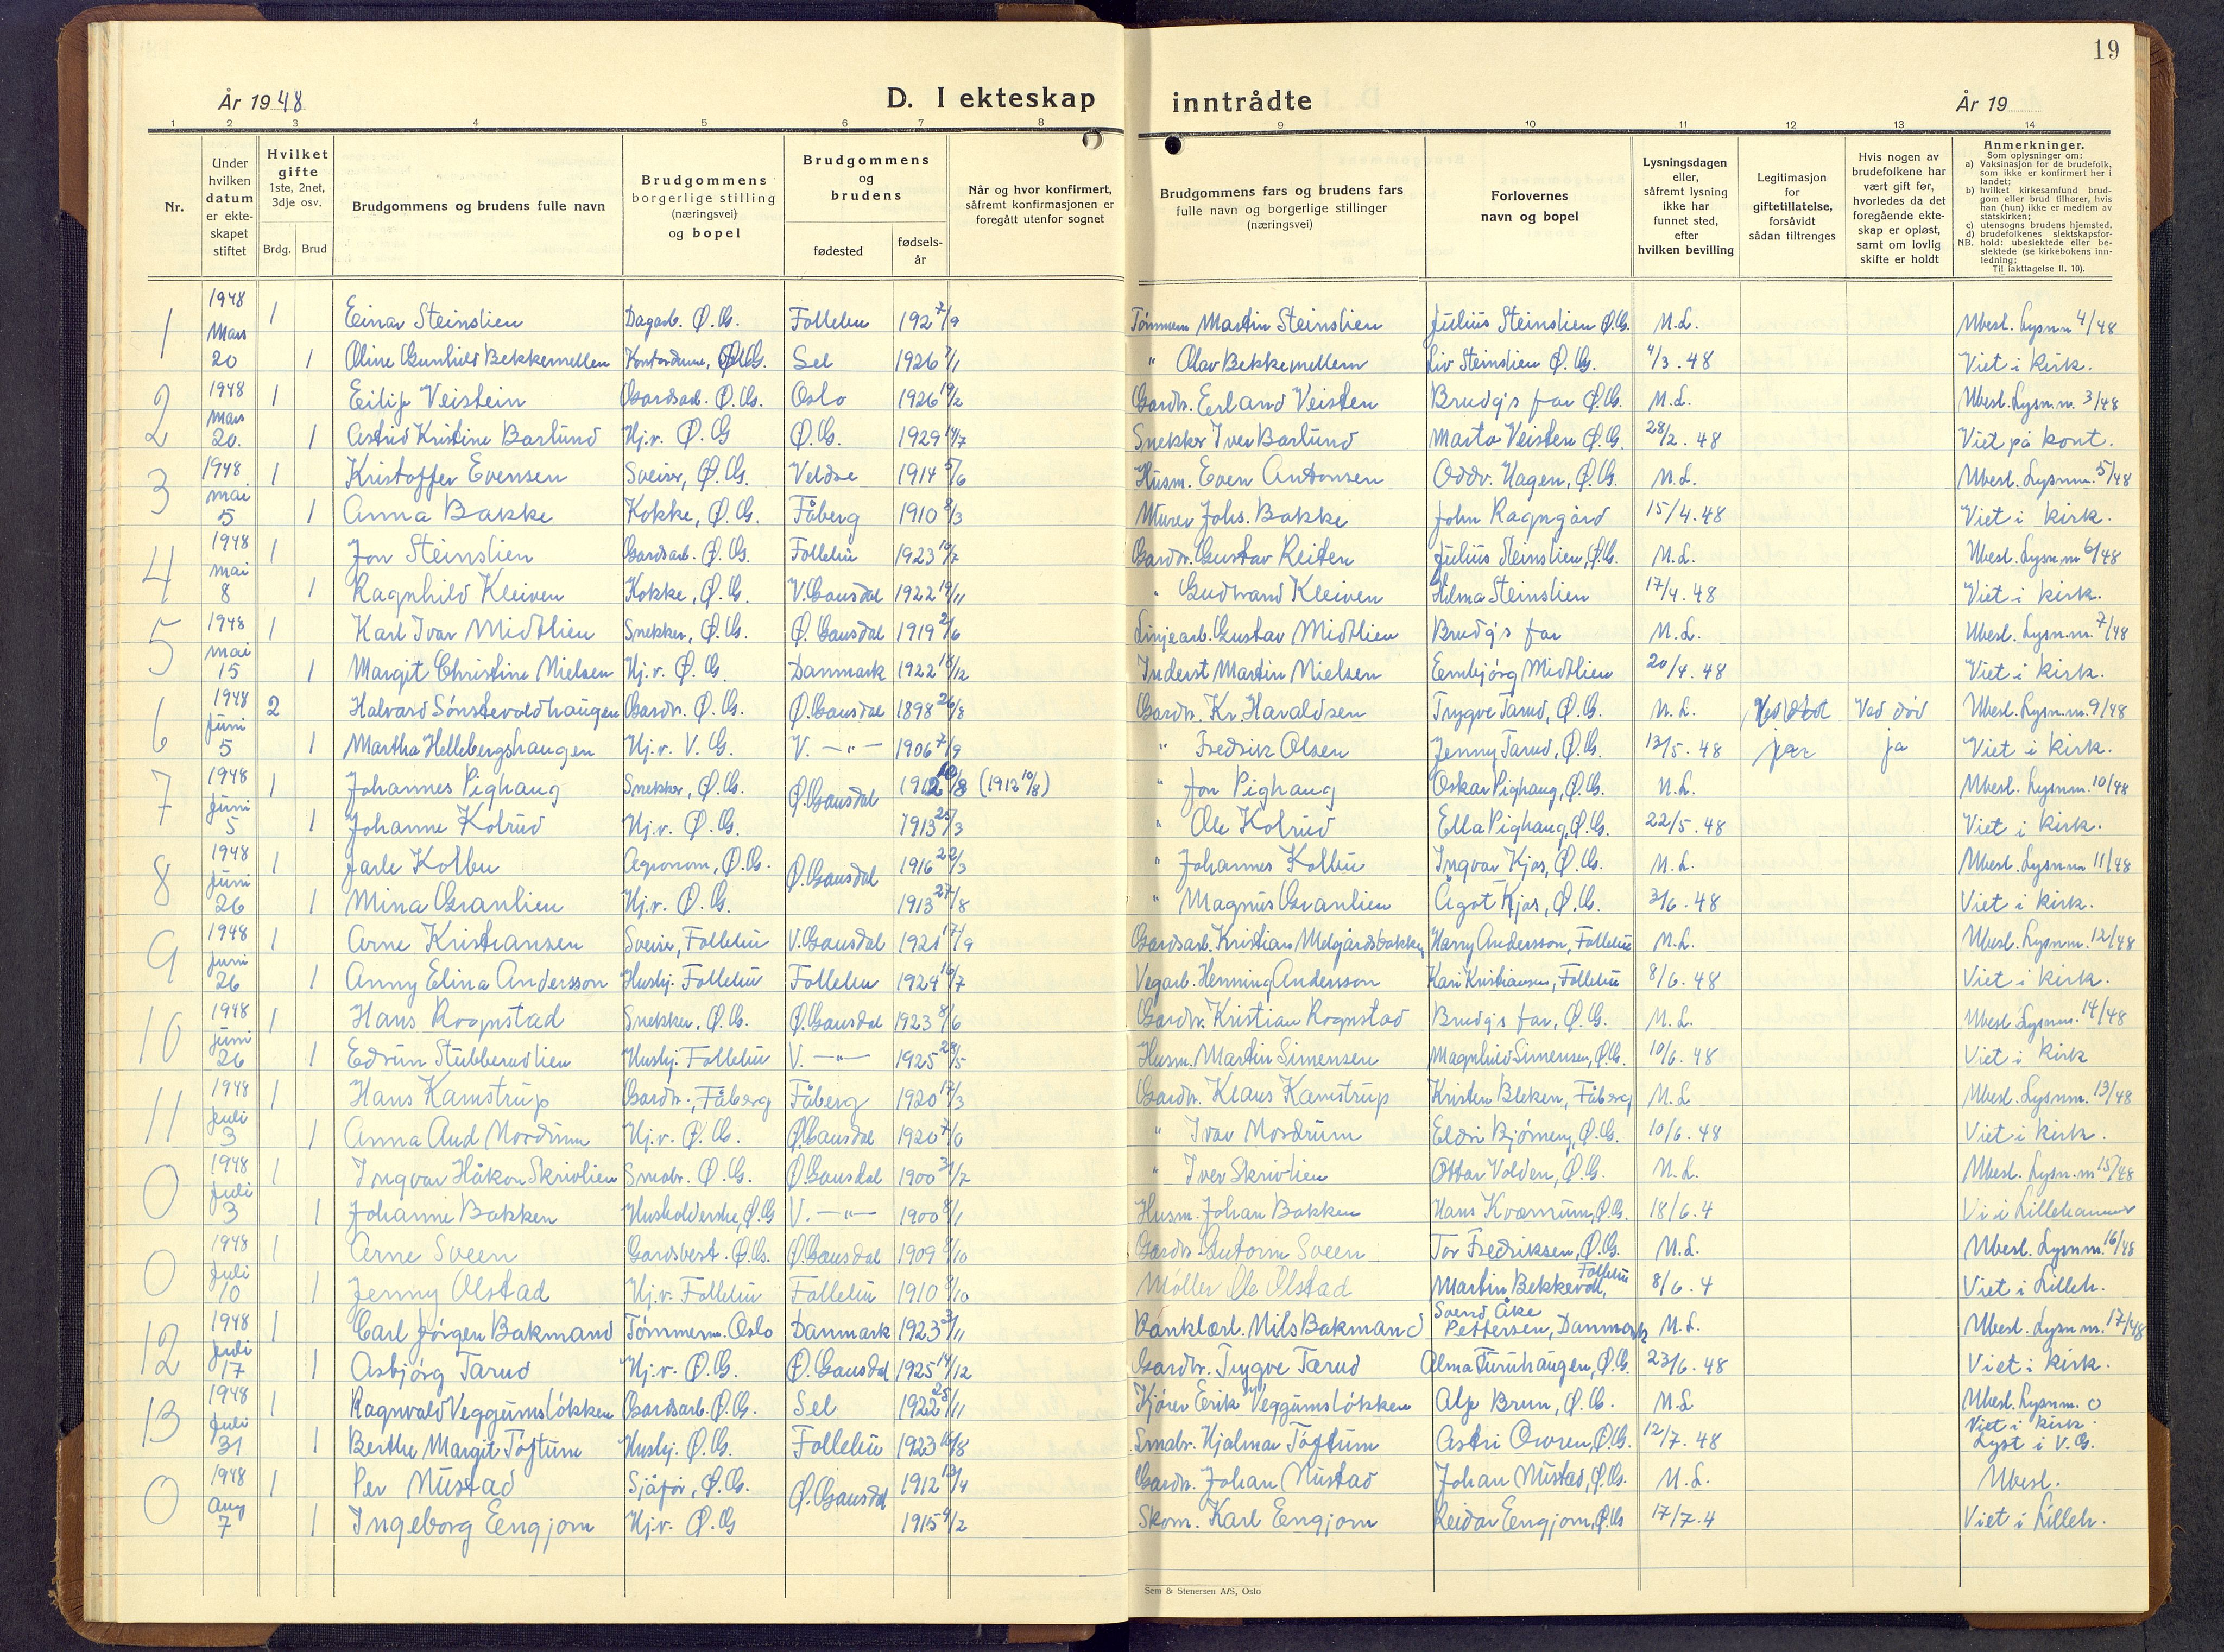 19
År 1948
D. I ekteskap inntrådte
År 19
1 2 3 4 5 6 7 8 9 10 11 12 13 14
Nr.
Under hvilken datum er ekteskapet stiftet
Hvilket gifte 1ste, 2net, 3dje osv.
Brdg. Brud
Brudgommens og brudens fulle navn
Brudgommens borgerlige stilling (næringsvei) og bopel
Brudgommens og brudens
fødested
fødsels-år
Når og hvor konfirmert, såfremt konfirmasjonen er foregått utenfor sognet
Brudgommens fars og brudens fars fulle navn og borgerlige stillinger (næringsvei)
Forlovernes navn og bopel
Lysningsdagen eller, såfremt lysning ikke har funnet sted, efter hvilken bevilling
Legitimasjon for giftetillatelse, forsåvidt sådan tiltrenges
Hvis nogen av brudefolkene har vært gift før, hvorledes da det foregående ekteskap er opløst, samt om lovlig skifte er holdt
Anmerkninger.
Som oplysninger om:
a) Vaksinasjon for de brudefolk, som ikke er konfirmert her i landet;
b) hvilket kirkesamfund brudgom eller brud tilhører, hvis han (hun) ikke er medlem av statskirken;
c) utensogns brudens hjemsted.
d) brudefolkenes slektskapsforhold: ubeslektede eller beslektede (se kirkebokens innledning;
NB. Til iakttagelse II. 10).
1 1948 Mars 1 Einar Steinslien Dagarb. Ø.G. Follebu 1927 7/9 Tömmerm Martin Steinslien Julius Steinslien Ø.G. N.L. Ubesl. Lysn.n 4/48
20 1 Oline Gunhild Bekkemellem Ø.G. Sel 1926 7/1 " Olav Bekkemellem Liv Steinslien Ø.G. 4/3.48 Viet i kirk.
2 1948 Mars 1 Eilif Veistein Gardsarb. Ø.G. Oslo 1926 19/2 Gardbr. Erland Veisten Brudg's far Ø.G. N.L. Ubesl. Lysn.n. 3/48
20. 1 Astrid Kristine Barlund Hj.v. Ø.G Ø.G. 1929 14/7 Snekker Iver Barlund Marta Veisten Ø.G. 28/2.48 Viet på kont.
3 1948 mai 1 Kristoffer Evensen Sveiser, Ø.G. Veldre 1914 5/6 Husm. Even Antonsen Oddv. Hagen, Ø.G. N.L. Ubesl. Lysnn. 5/48
5 1 Anna Bakke Kokke, Ø.G. Fåberg 1910 8/3 Murer Johs. Bakke John Ragngård 15/4.48 Viet i kirk.
4 1948 mai 1 Jon Steinslien Gardsarb. Ø.G. Follebu 1923 10/7 Gardbr. Gustav Reiten Julius Steinslien, Ø.G. N.L. Ubesl. Lysn.n 6/48
8 1 Ragnhild Kleiven Kokke, Ø.G. V. Gausdal 1922 19/11 " Gudbrand Kleiven Hilma Steinslien 17/4.48 Viet i kirk.
5 1948 mai 1 Karl Ivar Midtlien Snekker, Ø.G. Ø. Gausdal 1919 2/6 Linjearb. Gustav Midtlien Brudg's far N.L. Ubesl. Lysn.n. 7/48
15 1 Margit Christine Nielsen Hj.v. Ø.G Danmark 1922 18/12 Inderst Martin Nielsen Eembjörg Midtlien 20/4.48 Viet i kirk.
6 1948 Juni 2 Halvard Sönstevoldhaugen Gardbr. Ø.G. Ø.Gausdal 1898 26/8 Gardbr. Kr. Haraldsen Trygve Tarud, Ø.G. N.L. Ved död Ubesl. Lysn.n. 9/48
5 1 Martha Hellebergshaugen Hj.v. V.G. V. —"— 1906 7/9 " Fredrik Olsen Jenny Tarud, Ø.G. 13/5.48 ja ja Viet i kirk.
7 1948 Juni 1 Johannes Pighaug Snekker, Ø.G. Ø.Gausdal 1912 10/8 (1912 10/8) " Jon Pighaug Oskar Pighaug, Ø.G. N.L. Ubesl. Lysnn. 10/48
5 1 Johanne Kolrud Hj.v. Ø.G. 1913 25/3 " Ole Kolrud Ella Pighaug, Ø.G. 22/5.48 Viet i kirk.
8 1948 Juni 1 Jarle Kolbu Agronom, Ø.G. Ø.Gausdal 1916 22/3 " Johannes Kolbu Ingvar Kjos, Ø.G. N.L. Ubesl. Lysnn 11/48
26 1 Mina Granlien Hj.v. Ø.G. 1913 27/8 " Magnus Granlien Ågot Kjos, Ø.G. 3/6.48 Viet i kirk.
9 1948 Juni 1 Arne Kristiansen Sveiser, Follebu V. Gausdal 1921 17/9 Gardsarb. Kristian Melgårdsbakken Harry Andersson, Follebu N.L. Ubesl. Lysnn. 12/48
26 1 Anny Elina Andersson Hushj. Follebu Follebu 1924 16/7 Vegarb. Henning Andersson Kari Kristiansen, Follebu 8/6.48 Viet i kirk.
10 1948 Juni 1 Hans Rognstad Snekker, Ø.G. Ø.Gausdal 1923 8/6 Gardbr. Kristian Rognstad Brudg's far, Ø.G. N.L. Ubesl. Lysnn. 14/48
26 1 Edrun Stubberudlien Hushj. Follebu V. —"— 1925 28/5 Husm. Martin Simensen Magnhild Simensen, Ø.G. 10/6.48 Viet i kirk
11 1948 Juli 1 Hans Kamstrup Gardbr., Fåberg Fåberg 1920 17/3 Gardbr. Klaus Kamstrup Kristen Bleken, Fåberg N.L. Ubesl. Lysnn. 13/48
3 1 Anna Aud Nordrum Hj.v. Ø.G. Ø.Gausdal 1920 " Ivar Nordrum Eldri Björneng, Ø.G. 10/6.48 Viet i kirk.
0 1948 Juli 1 Ingvar Håkon Skrivlien Småbr. Ø.G. Ø.Gausdal 1900 31/7 " Iver Skrivlien Ottar Volden, Ø.G. N.L. Ubesl. Lysn.n 15/48
3 1 Johanne Bakken Husholderske, Ø.G V. —"— 1900 8/1 Husm. Johan Bakken Hans Kværrum, Ø.G. 18/6.4 Vi i Lillehammer
0 1948 Juli 1 Arne Sveen Gardsbest. Ø.G. Ø.Gausdal 1909 Gardbr. Gutorm Sveen Tor Fredriksen, Ø.G. N.L. Ubesl. Lysnn. 16/48
10 1 Jenny Olstad Hj.v. Follebu Follebu 1910 8/10 Møller Ole Olstad Martin Bekkevoll, Follebu 8/6.4 Viet i Lilleh.
12 1948 Juli 1 Carl Jörgen Bakmand Tömmerm. Oslo Danmark 1923 3/11 Nils Bakmand Svend Åke Pettersen, Danmark N.L. Ubesl. Lysn.n. 17/48
17 1 Asbjörg Tarud Hj.v. Ø.G. Ø. Gausdal 1925 14/12 Gardbr. Trygve Tarud Alma Furuhaugen, Ø.G. 23/6.48 Viet i kirk.
13 1948 Juli 1 Ragnvald Veggumslökken Gardsarb. Ø.G. Sel 1922 25/11 Kjörer Erik Veggumslökken Alf Brun, Ø.G. N.L Ubesl. Lysnn. 0
31 1 Berthe Margit Toftum Hushj. Ø.G. Follebu 1923 16/8 Småbr. Hjalmar Töftum Astri Owren, Ø.G. 12/7.48 Viet i kirk. Lyst i V.G.
0 1948 Aug 1 Per Nustad Sjåför, Ø.G. Ø.Gausdal 1912 13/4 Gardbr. Johan Nustad Johan Nustad, Ø.G. N.L. Ubesl.
7 1 Ingeborg Eengjom Hj.v. Ø.G 1915 4/2 Skom. Karl Eengjom Reidar Eengjom, Ø.G 17/7.4 Viet i Lilleh.
Sem & Stenersen A/S, Oslo